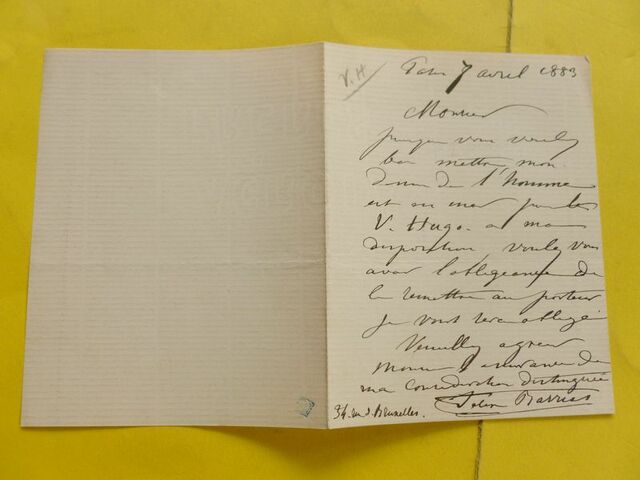 V. H
7 avril 1883
Monsieur
puisque vous voulez
bien mettre mon
dessin de l'homme
V. Hugo. à ma
disposition voulez vous
avoir l'obligeance de
le remettre au porteur
je vous serai obligé
Veuillez agréer
Monsieur l'assurance de
ma considération distinguée
Felix Barrias
34. rue d. Bruxelles.